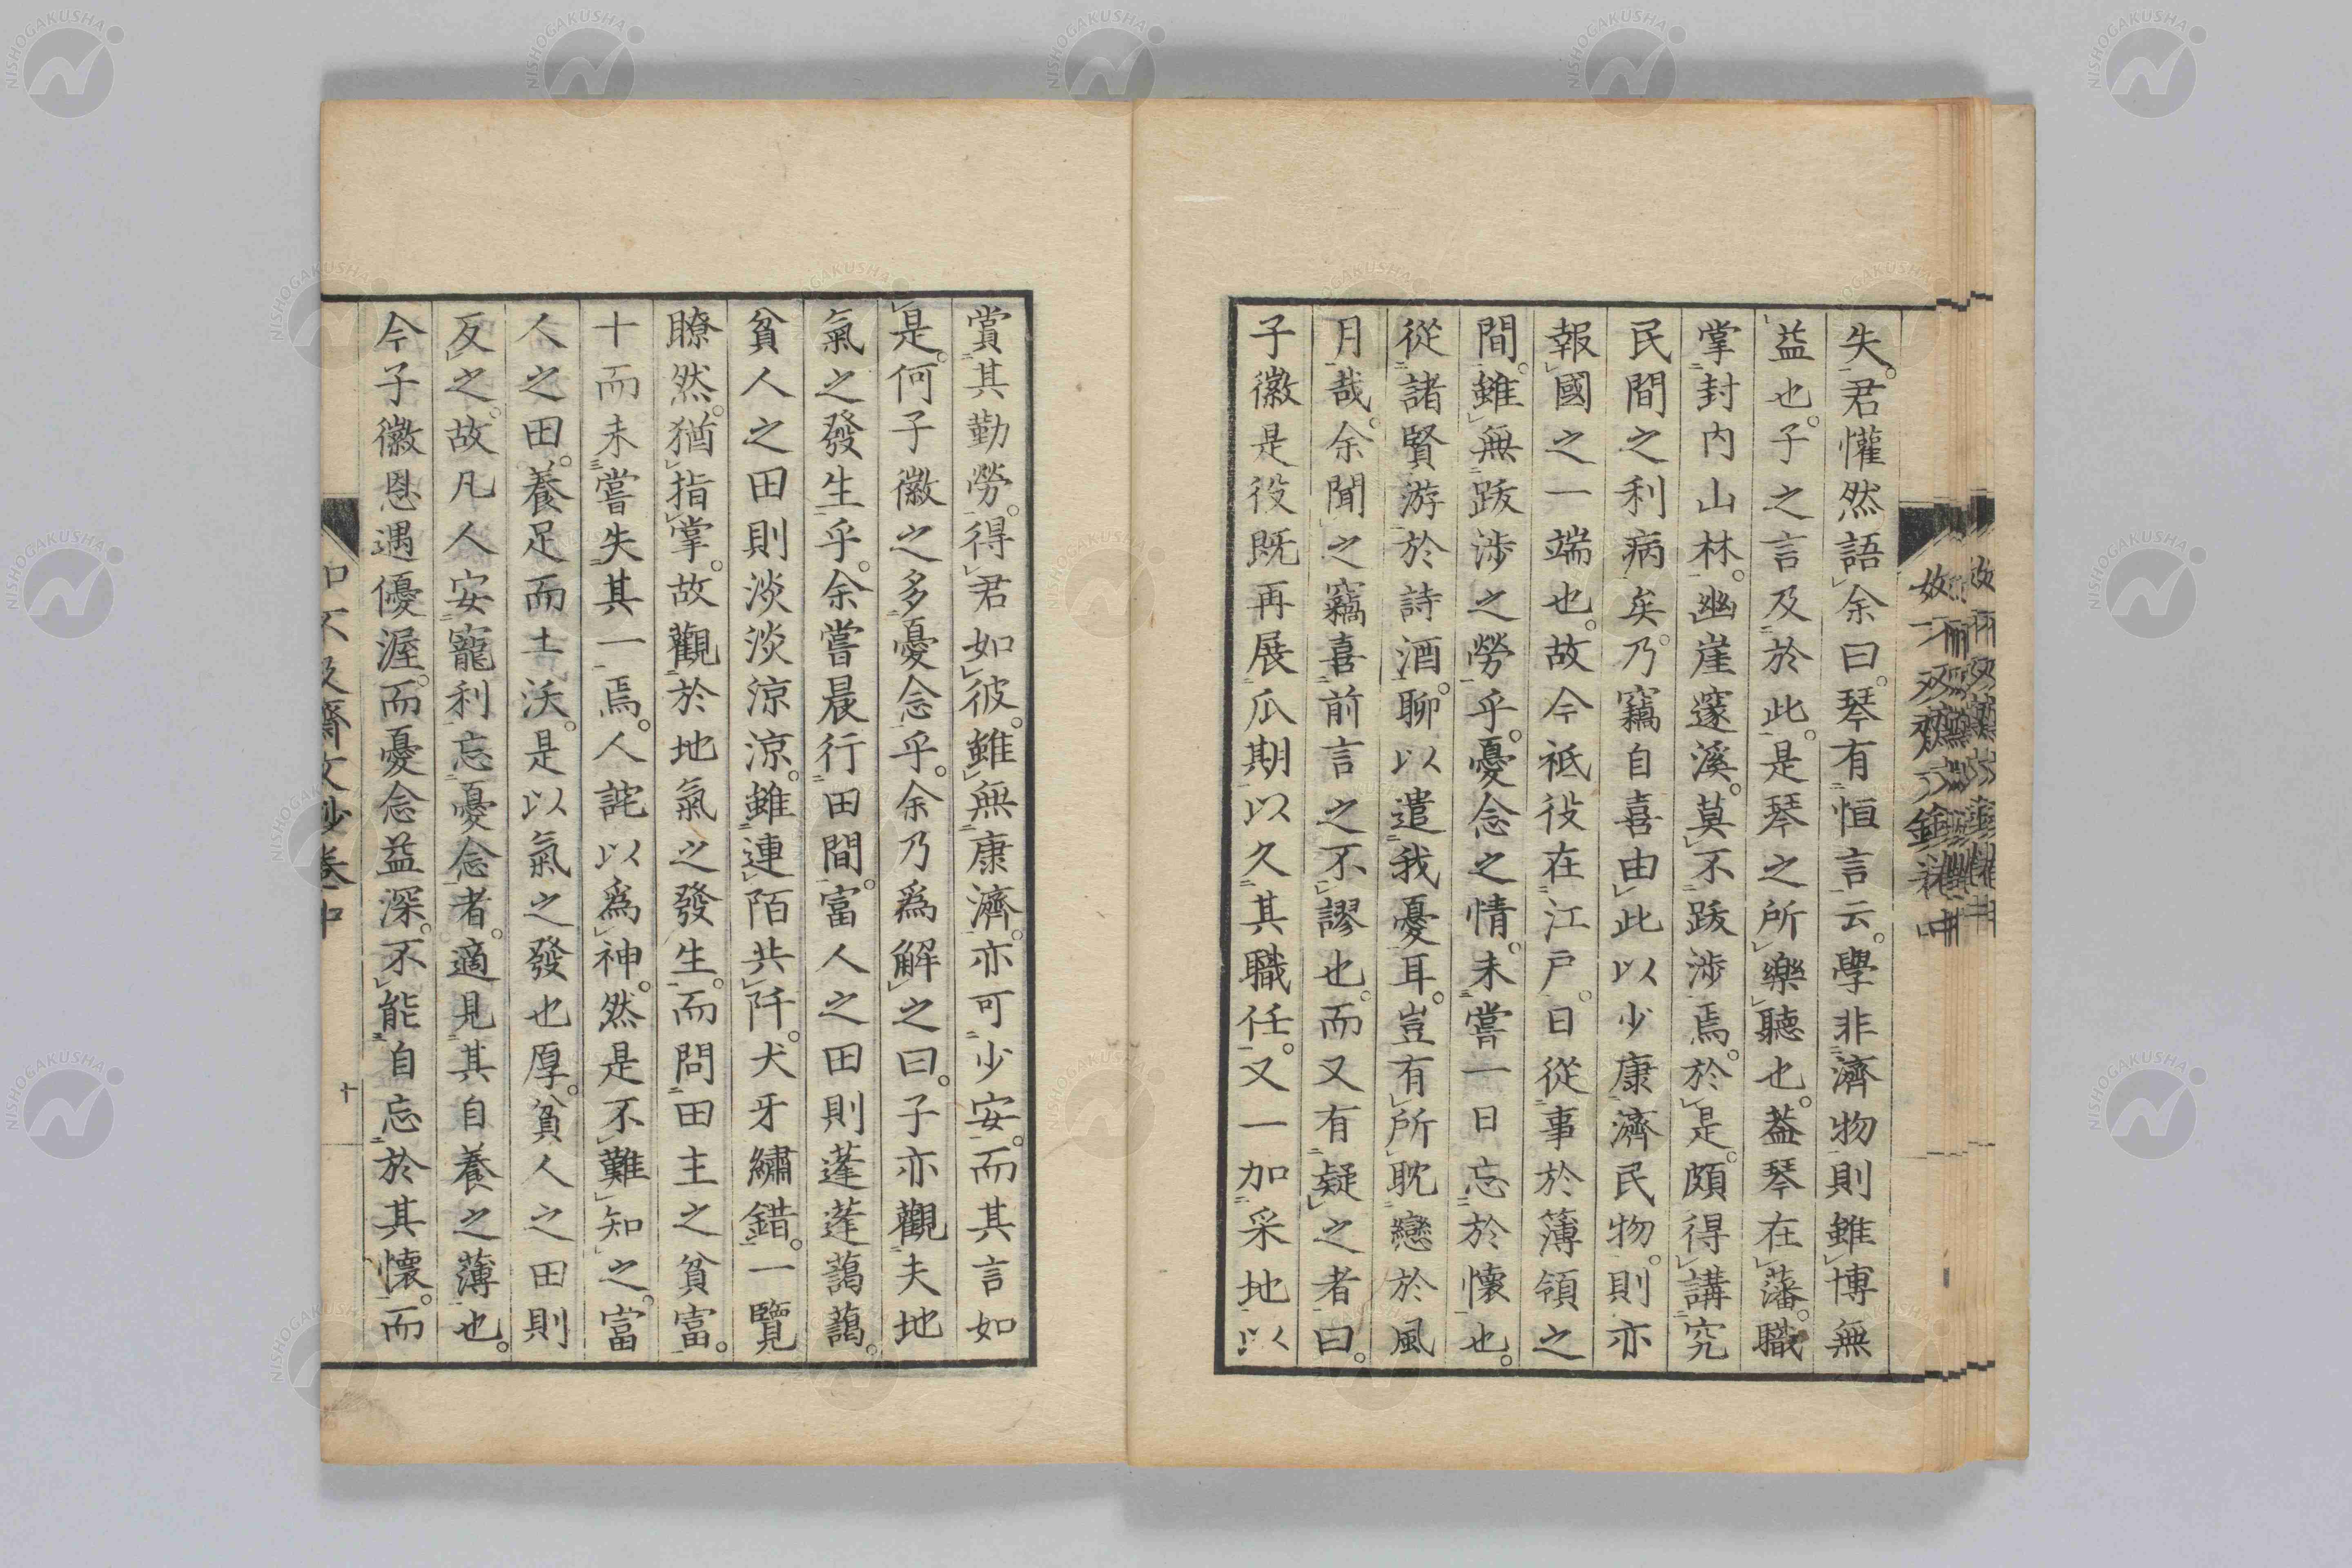 失。君懽然語余曰。琴有恒言云。學非濟物則雖博無
益也。子之言及於此。是琴之所樂聽也。蓋琴在藩。職
掌封内山林。幽崖邃溪。莫不跋渉焉。於是。頗得講究
民間之利病矣。乃竊自喜由此以少康濟民物。則亦
報國之一端也。故今祗役在江戸。日從事於簿領之
間。雖無跋渉之勞乎。憂念之情。未嘗一日忘於懷也。
從諸賢游於詩酒。聊以遣我憂耳。豈有所耽戀於風
月哉。余聞之竊喜前言之不謬也。而又有疑之者曰。
子徽是役既再展瓜期以久其職任。又一加采地以
賞其勤勞。得君如彼。雖無康濟。亦可少安。而其言如
是。何子徽之多憂念乎。余乃爲解之曰。子亦觀夫地
氣之發生乎。余嘗晨行田間。富人之田則蓬蓬藹藹。
貧人之田則淡淡涼涼。雖連陌共阡。犬牙繡錯。一覽
瞭然。猶指掌。故觀於地氣之發生。而問田主之貧富。
十而未嘗失其一焉。人詫以爲神。然是不難知之。富
人之田。養足而土沃。是以氣之發也厚。貧人之田則
反之。故凡人安寵利忘憂念者。適見其自養之薄也。
今子徽恩遇優渥。而憂念益深。不能自忘於其懷。而
如不及齋文鈔 卷中
十
NISHOGAKUSHA